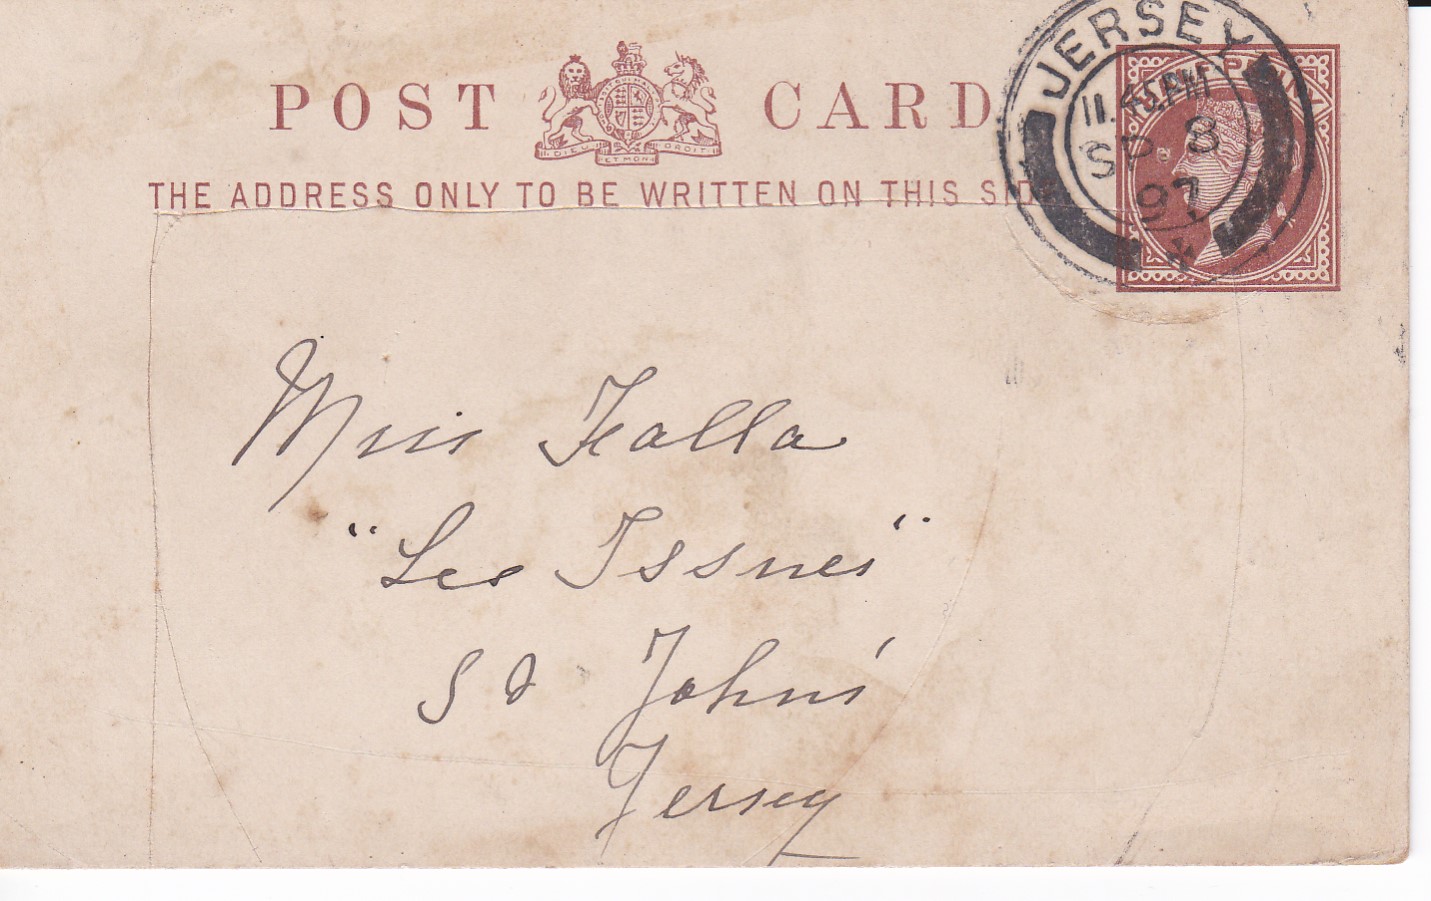 POST CARD
DIEU ET MON DROIT
THE ADDRESS ONLY TO BE WRITTEN ON THIS SIDE
JERSEY
11.45PM
SP 8
97
Miss Falla
"Les Issues"
St John's
Jersey